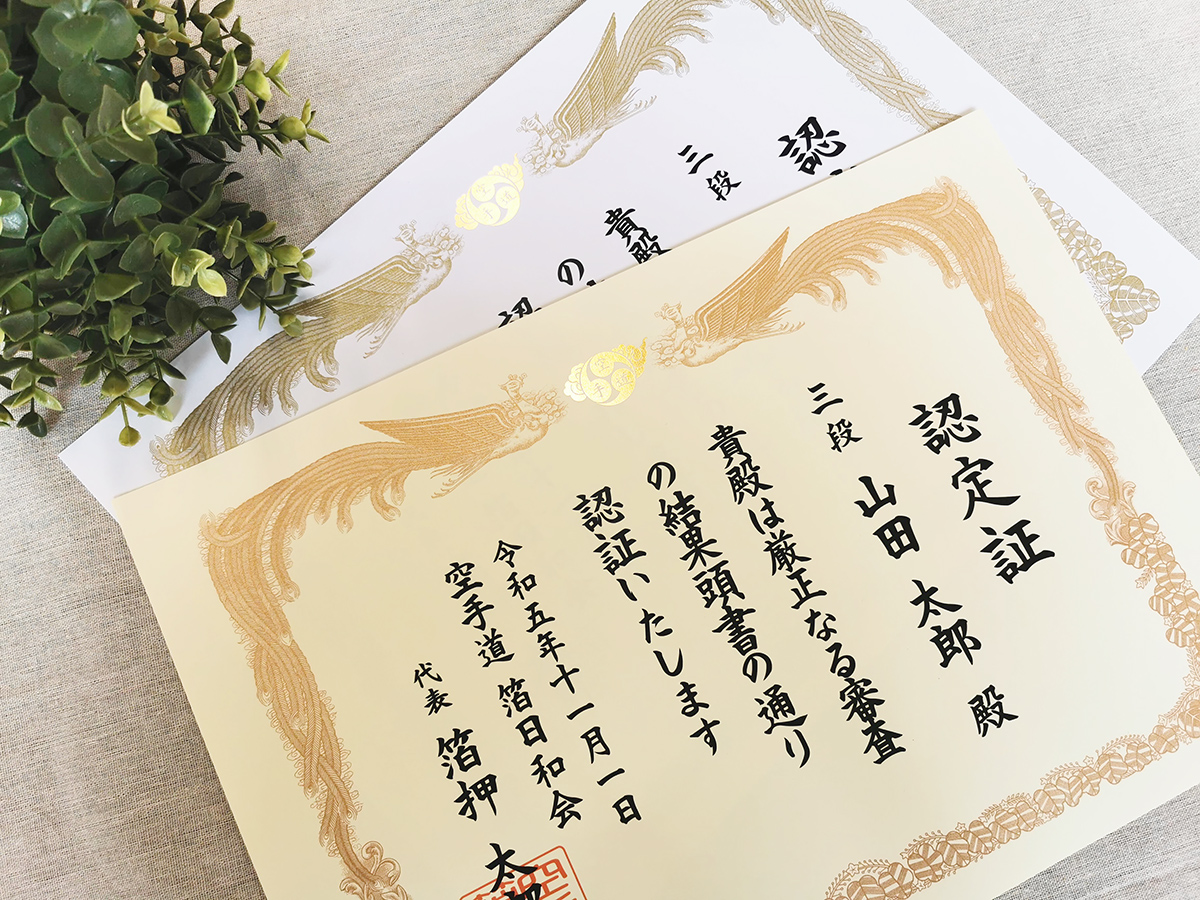 認定証
三段 山田 太郎 殿
貴殿は厳正なる審査
の結果頭書の通り
認証いたします
令和五年十一月一日
空手道 箔日和会
代表 箔押 太郎
認
三段
貴殿
の
認
空手道
空手道